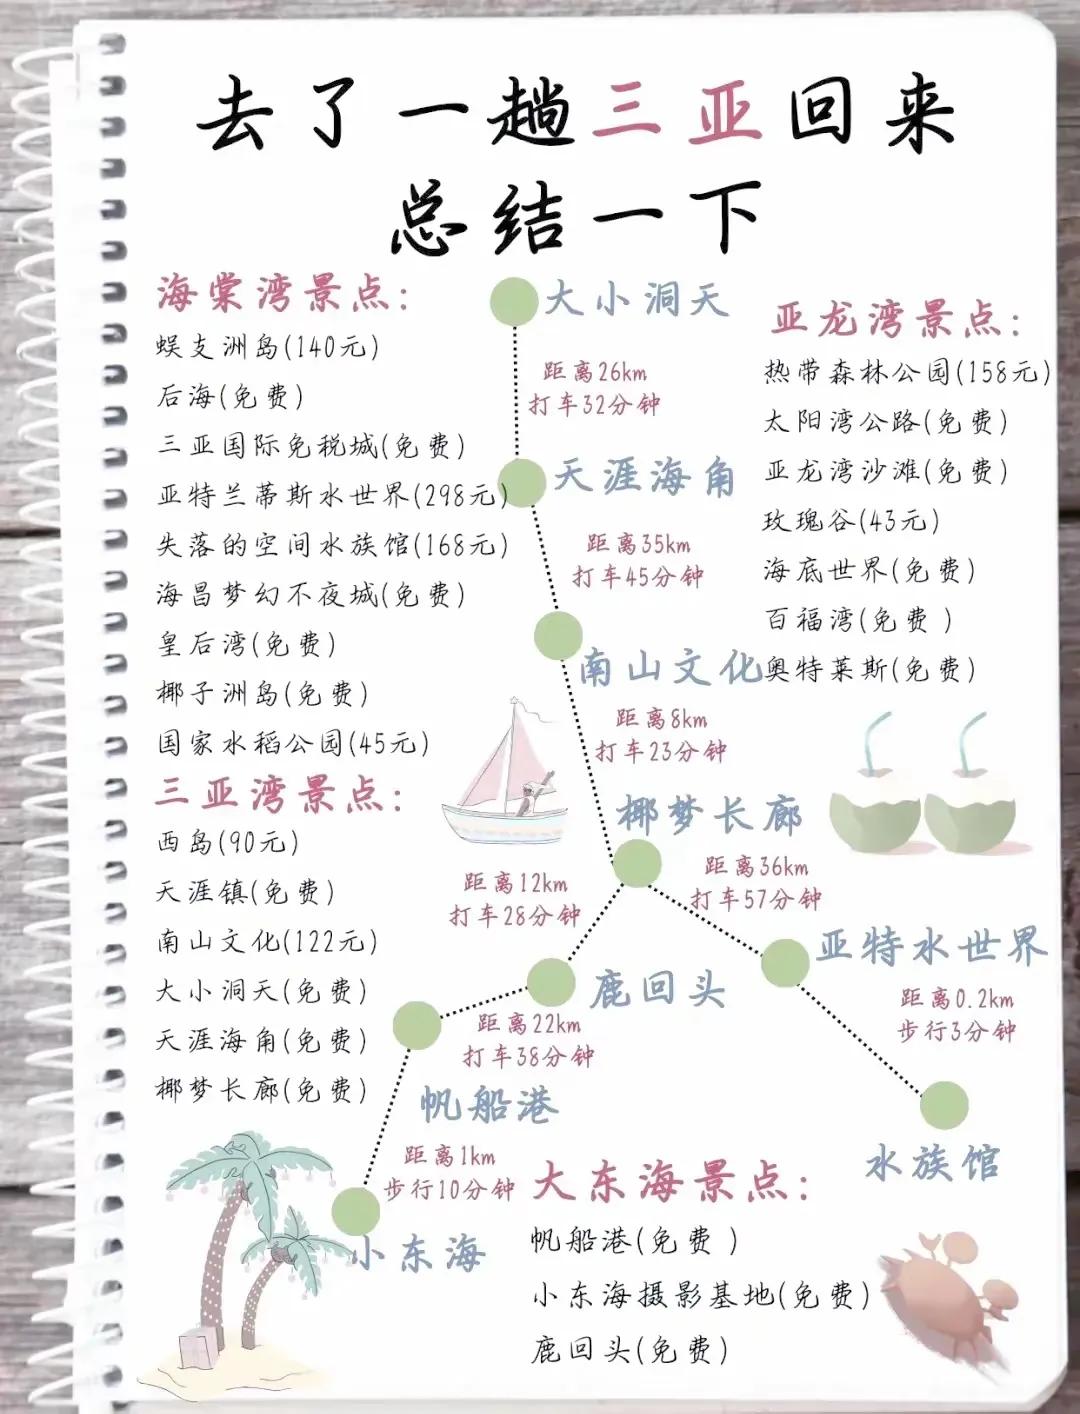 去了一趟三亚回来
总结一下
海棠湾景点:
蜈支洲岛(140元)
后海(免费)
三亚国际免税城(免费)
亚特兰蒂斯水世界(298元)
失落的空间水族馆(168元)
海昌梦幻不夜城(免费)
皇后湾(免费)
椰子洲岛(免费)
国家水稻公园(45元)
三亚湾景点:
西岛(90元)
天涯镇(免费)
南山文化(122元)
大小洞天(免费)
天涯海角(免费)
椰梦长廊(免费)
大小洞天
距离26km
打车32分钟
天涯海角
距离35km
打车45分钟
南山文化
距离8km
打车23分钟
椰梦长廊
距离12km
打车28分钟
距离36km
打车57分钟
鹿回头
距离22km
打车38分钟
帆船港
距离1km
步行10分钟
小东海
亚特水世界
距离0.2km
步行3分钟
水族馆
亚龙湾景点:
热带森林公园(158元)
太阳湾公路(免费)
亚龙湾沙滩(免费)
玫瑰谷(43元)
海底世界(免费)
百福湾(免费 )
奥特莱斯(免费)
大东海景点:
帆船港(免费 )
小东海摄影基地(免费)
鹿回头(免费)